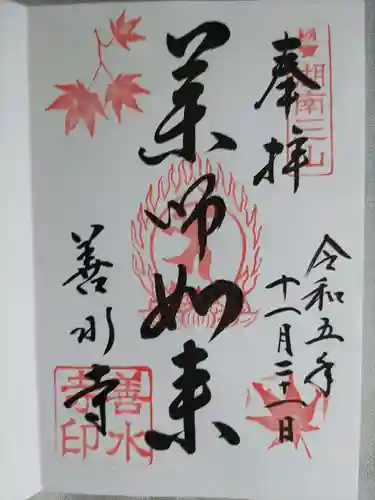 奉拝
湖南三山
令和五年
十一月二十一日
薬師如来
善水寺
善水
寺印